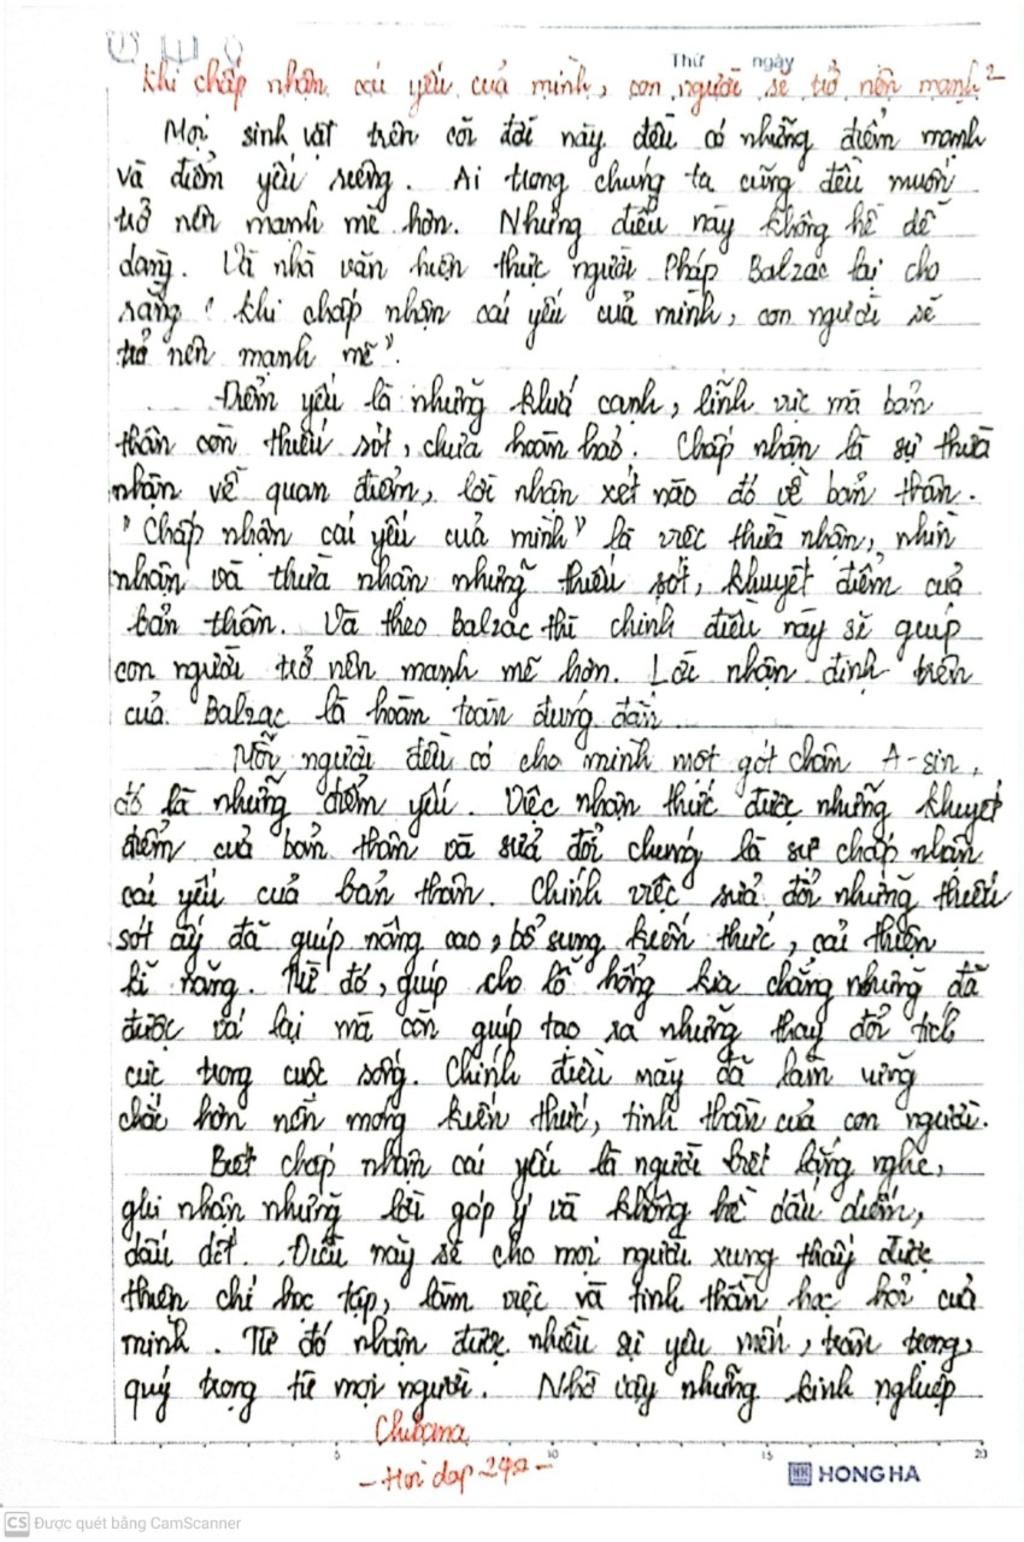 Thứ ngày
Khi chấp nhận cái yếu của mình, con người sẽ trở nên mạnh
Mọi sinh vật trên cõi đời này đều có những điểm mạnh
và điểm yếu riêng. Ai trong chúng ta cũng đều muốn
trở nên mạnh mẽ hơn. Nhưng điều này không hề dễ
dàng. Và nhà văn hiện thực người Pháp Balzac lại cho
rằng " khi chấp nhận cái yếu của mình, con người sẽ
trở nên mạnh mẽ".
Điểm yếu là những khía cạnh, lĩnh vực mà bản
thân còn thiếu sót, chưa hoàn hảo. Chấp nhận là sự thừa
nhận về quan điểm, lời nhận xét nào đó về bản thân.
" Chấp nhận cái yếu của mình" là việc thừa nhận, nhìn
nhận và thừa nhận những thiếu sót, khuyết điểm của
bản thân. Và theo Balzac thì chính điều này sẽ giúp
con người trở nên mạnh mẽ hơn. Lời nhận định trên
của Balzac là hoàn toàn đúng đắn.
Mỗi người đều có cho mình một gót chân A-sin,
đó là những điểm yếu. Việc nhận thức được những khuyết
điểm của bản thân và sửa đổi chúng là sự chấp nhận
cái yếu của bản thân. Chính việc sửa đổi những thiếu
sót ấy đã giúp nâng cao, bổ sung kiến thức, cải thiện
kĩ năng. Từ đó, giúp cho lỗ hổng kia chẳng những đã
được vá lại mà còn giúp tạo ra những thay đổi tích
cực trong cuộc sống. Chính điều này đã làm vững
chắc hơn nền móng kiến thức, tinh thần của con người.
Biết chấp nhận cái yếu là người biết lắng nghe,
ghi nhận những lời góp ý và không hề dấu diếm,
dấu dốt. Điều này sẽ cho mọi người xung thấy được
thiện chí học tập, làm việc và tinh thần học hỏi của
mình. Từ đó nhận được nhiều sự yêu mến, trân trọng,
quý trọng từ mọi người. Nhờ vậy những kinh nghiệp
- Hoi dap 247 -
5 10 15 20
HONG HA
CS Được quét bằng CamScanner